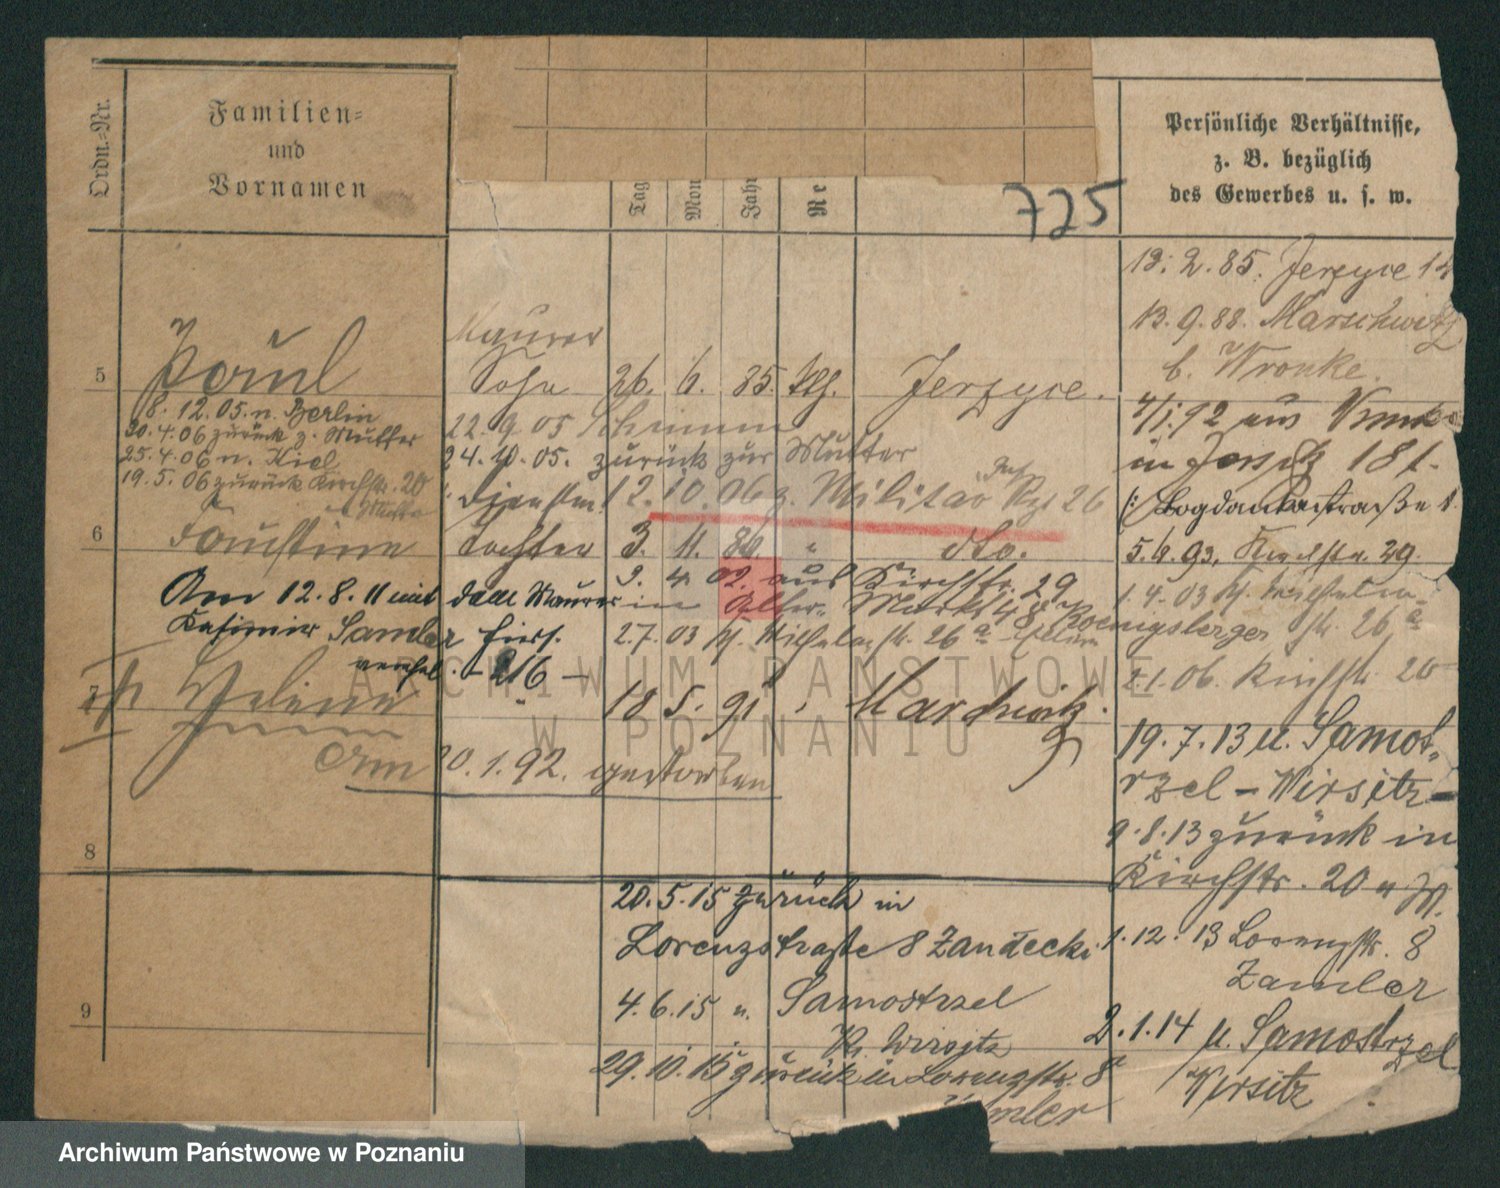 Ordn.-Nr.
Familien-
und
Vornamen
Tag
Mon
Jahr
Re
725
Persönliche Verhältnisse,
z. B. bezüglich
des Gewerbes u. s. w.
13. 2. 85. Jerzyce 14
13. 9. 88. Marschwitz
b. Wronke.
Maurer
5 Paul Sohn 26. 6. 85. Jerzyce.
8. 12. 05. n. Berlin
30. 4. 06 zurück z. Mutter
25. 4. 06 n. Kiel
19. 5. 06 zurück Kirchstr. 20
z. Mutter
22. 9. 05 Schrimm
24. 10. 05. zurück zur Mutter
12. 10. 06 z. Militär 26
4/1. 92 aus
in Jersitz 181.
5. 4. 93, 29.
6 Faustine Tochter 3. 11. 86. " dto.
3. 4. 02. aus Kirchstr. 29
in Alter. Markt 48
Am 12. 8. 11 mit dem Maurer
Kasimir Samler hiers.
verehel. - 216 -
2.7. 03 26a
1. 4. 03
Koenigsberger str. 26a
2.1. 06. Kirchstr. 20
7 Helene 18 5. 91 " Marchwitz.
am 20. 1. 92. gestorben
19. 7. 13 n. Samost-
rzel - Wirsitz -
9. 8. 13 zurück in
Kirchstr. 20
8
20. 5. 15 zurück in
Lorenzstraße 8 Zandecki
1. 12. 13 Lorenzstr. 8
Zamler
9
4. 6. 15 n. Samostrzel
Kr. Wirsitz
2. 1. 14 n. Samostrzel
Wirsitz
29. 10. 15 zurück in Lorenzstr. 8
ARCHIWUM PAŃSTWOWE
W POZNANIU
Archiwum Państwowe w Poznaniu